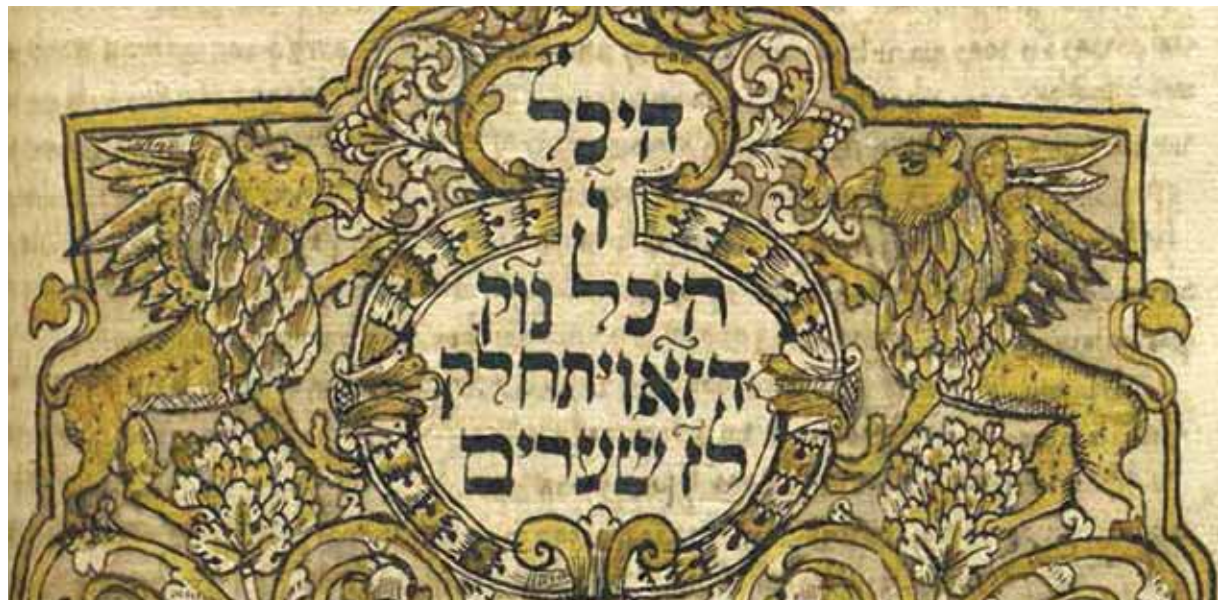 היכל
ו
היכל נוק
דזא ויתחלק
לז שערים